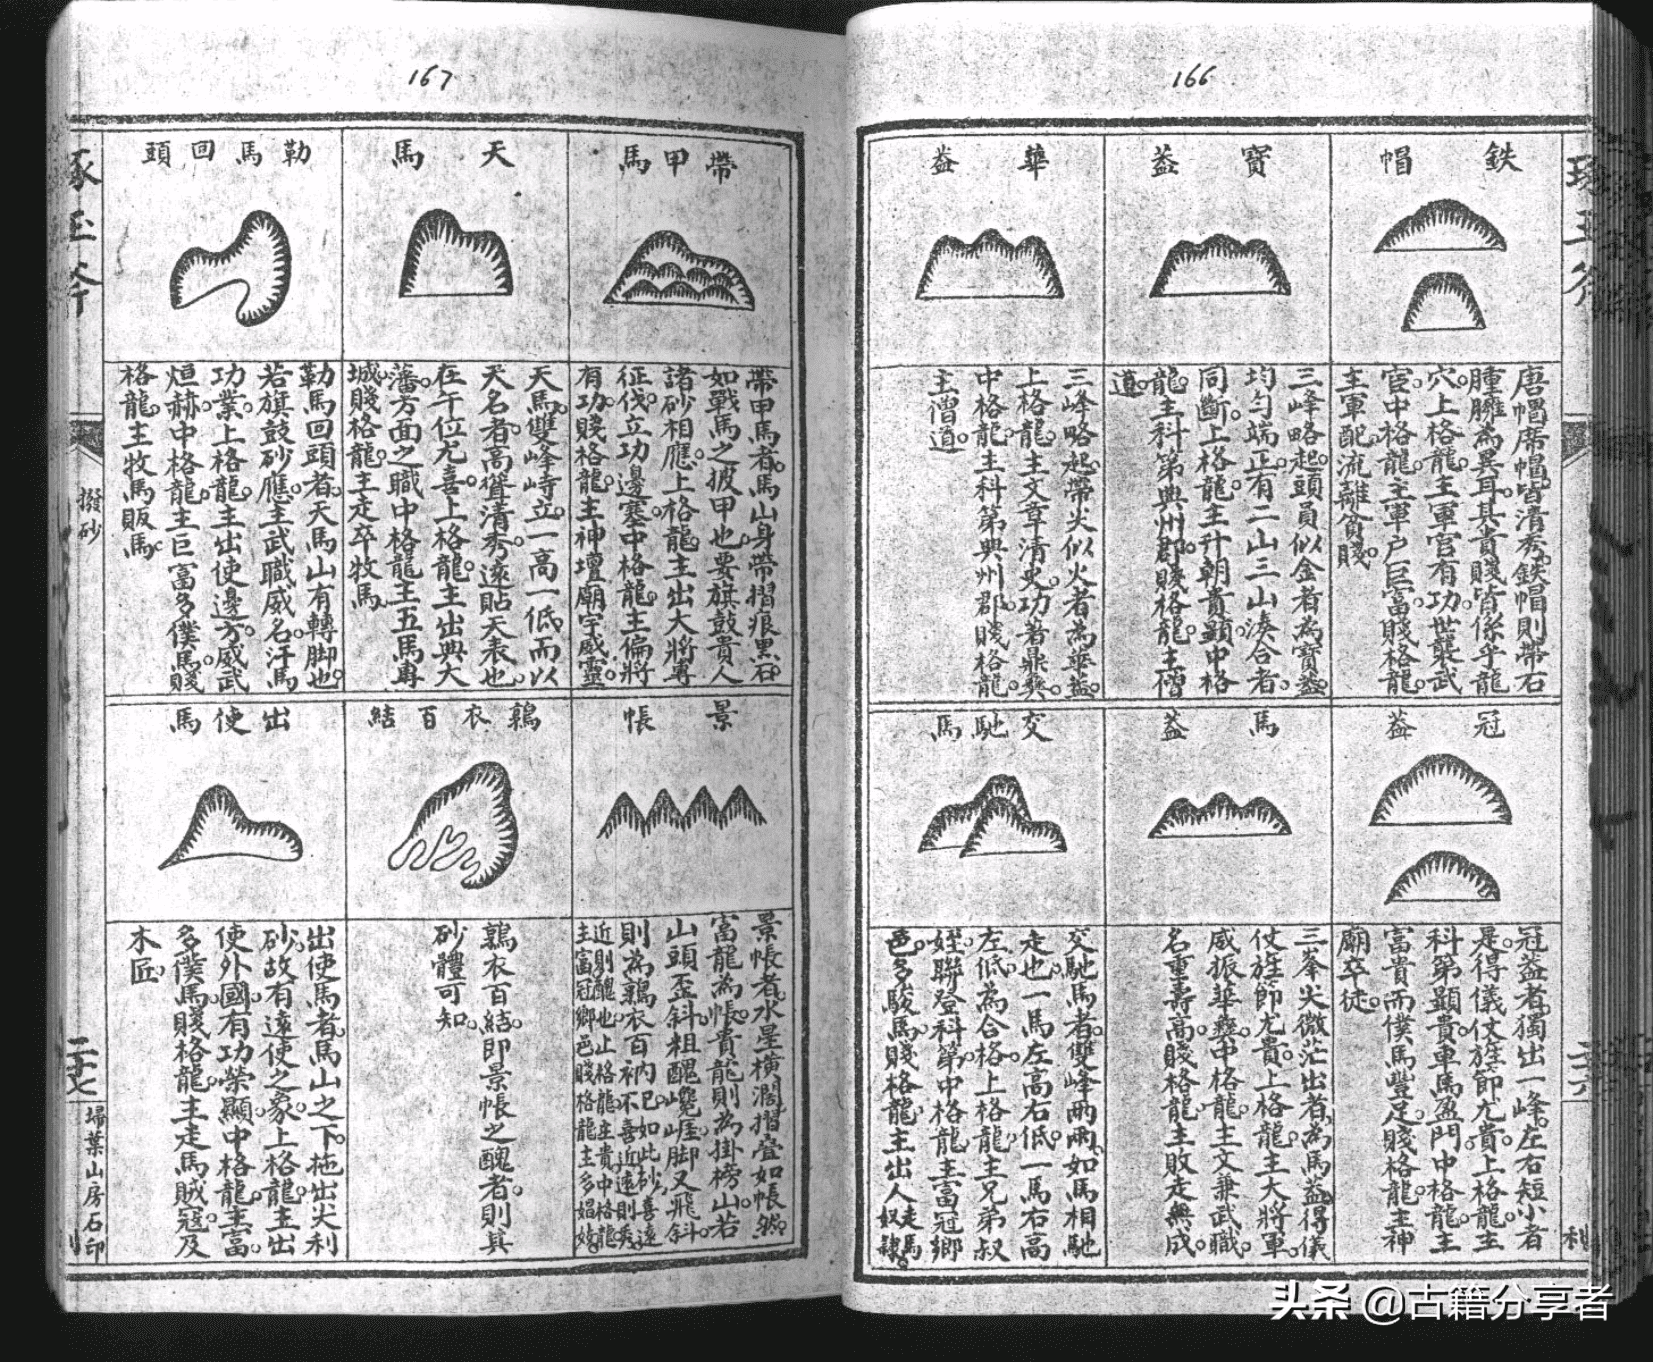 166
鉄帽
唐帽席帽皆清秀鉄帽則帶石
臃腫為異耳其貴賤皆係乎龍
穴上格龍主軍官有功世襲武
官中格龍主軍戶巨富賤格龍
主軍配流離貧賤
寳葢
三峰略起頭員似金者為寳葢
均勻端正有二山三山湊合者
同斷上格龍主升朝貴顯中格
龍主科第典州郡賤格龍主僧
道
華葢
三峰略起帶尖似火者為華葢
上格龍主文章清史功著鼎彝
中格龍主科第典州郡賤格龍
主僧道
冠葢
冠葢者獨出一峰左右短小者
是得儀仗旌節尤貴上格龍主
科第顯貴車馬盈門中格龍主
富貴而僕馬豐足賤格龍主神
廟卒徒
馬葢
三峯尖微茫出者為馬葢得儀
仗旌節尤貴上格龍主大將軍
威振華彝中格龍主文兼武職
名重壽高賤格龍主敗走無成
交馳馬
交馳馬者雙峰兩兩如馬相馳
走也一馬左高右低一馬右高
左低為合格上格龍主兄弟叔
姪聯登科第中格龍主富冠鄉
邑多駿馬賤格龍主出人奴隸走馬
琢玉斧
167
帶甲馬
帶甲馬者馬山身帶摺痕黑石
如戰馬之披甲也要旗鼓貴人
諸砂相應上格龍主出大將專
征伐立功邊塞中格龍主偏將
有功賤格龍主神壇廟宇威靈
天馬
天馬雙峰峙立一高一低而以
天名者高聳清秀遠貼天表也
在午位尤喜上格龍主出典大
藩方面之職中格龍主五馬專
城賤格龍主走卒牧馬
勒馬回頭
勒馬回頭者天馬山有轉脚也
若旗鼓砂應主武職威名汗馬
功業上格龍主出使邊方威武
烜赫中格龍主巨富多僕馬賤
格龍主牧馬販馬
景帳
景帳者水星橫濶摺叠如帳然
富龍為帳貴龍則為掛榜山若
山頭歪斜粗醜巉崕脚又飛斜
則為鶉衣百衲已如此砂喜遠
不喜近遠則秀
近則醜也上格龍主貴中格龍
主富冠鄉邑賤格龍主多娼妓
鶉衣百結
鶉衣百結即景帳之醜者則其
砂體可知
出使馬
出使馬者馬山之下拖出尖利
砂故有遠使之象上格龍主出
使外國有功榮顯中格龍主富
多僕馬賤格龍主走馬賊寇及
木匠
琢玉斧
撥砂
二十七
掃葉山房石印
头条 @古籍分享者